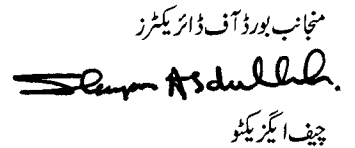 منجانب بورڈ آف ڈائریکٹرز
Abdullah.
چیف ایگزیکٹو